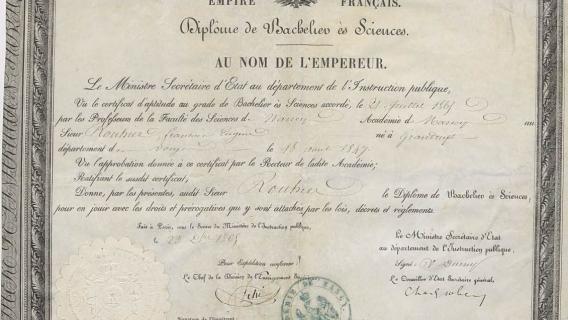 EMPIRE FRANÇAIS.
Diplôme de Bachelier ès Sciences.
AU NOM DE L'EMPEREUR.
Le Ministre Secrétaire d'Etat au département de l'Instruction publique,
Vu le certificat d'aptitude au grade de Bachelier ès Sciences accordé, le 21 Juillet 1865
par les Professeurs de la Faculté des Sciences de Nancy Académie de Nancy au
Sieur Rouhier Eugène né à
département d Vosges le 18 août 1847
Vu l'approbation donnée à ce certificat par le Recteur de ladite Académie;
Ratifiant le susdit certificat,
Donne, par les présentes, audit Sieur Rouhier le Diplôme de Bachelier ès Sciences,
pour en jouir avec les droits et prérogatives qui y sont attachés par les lois, décrets et règlements.
Fait à Paris, sous le Sceau du Ministère de l'Instruction publique,
le 1865
Le Ministre Secrétaire d'Etat
au département de l'Instruction publique,
Signé: V. Duruy
Pour Expédition conforme:
Le Chef de la Division de l'Enseignement Supérieur
Le Conseiller d'Etat Secrétaire général,
Signature de l'Impétrant